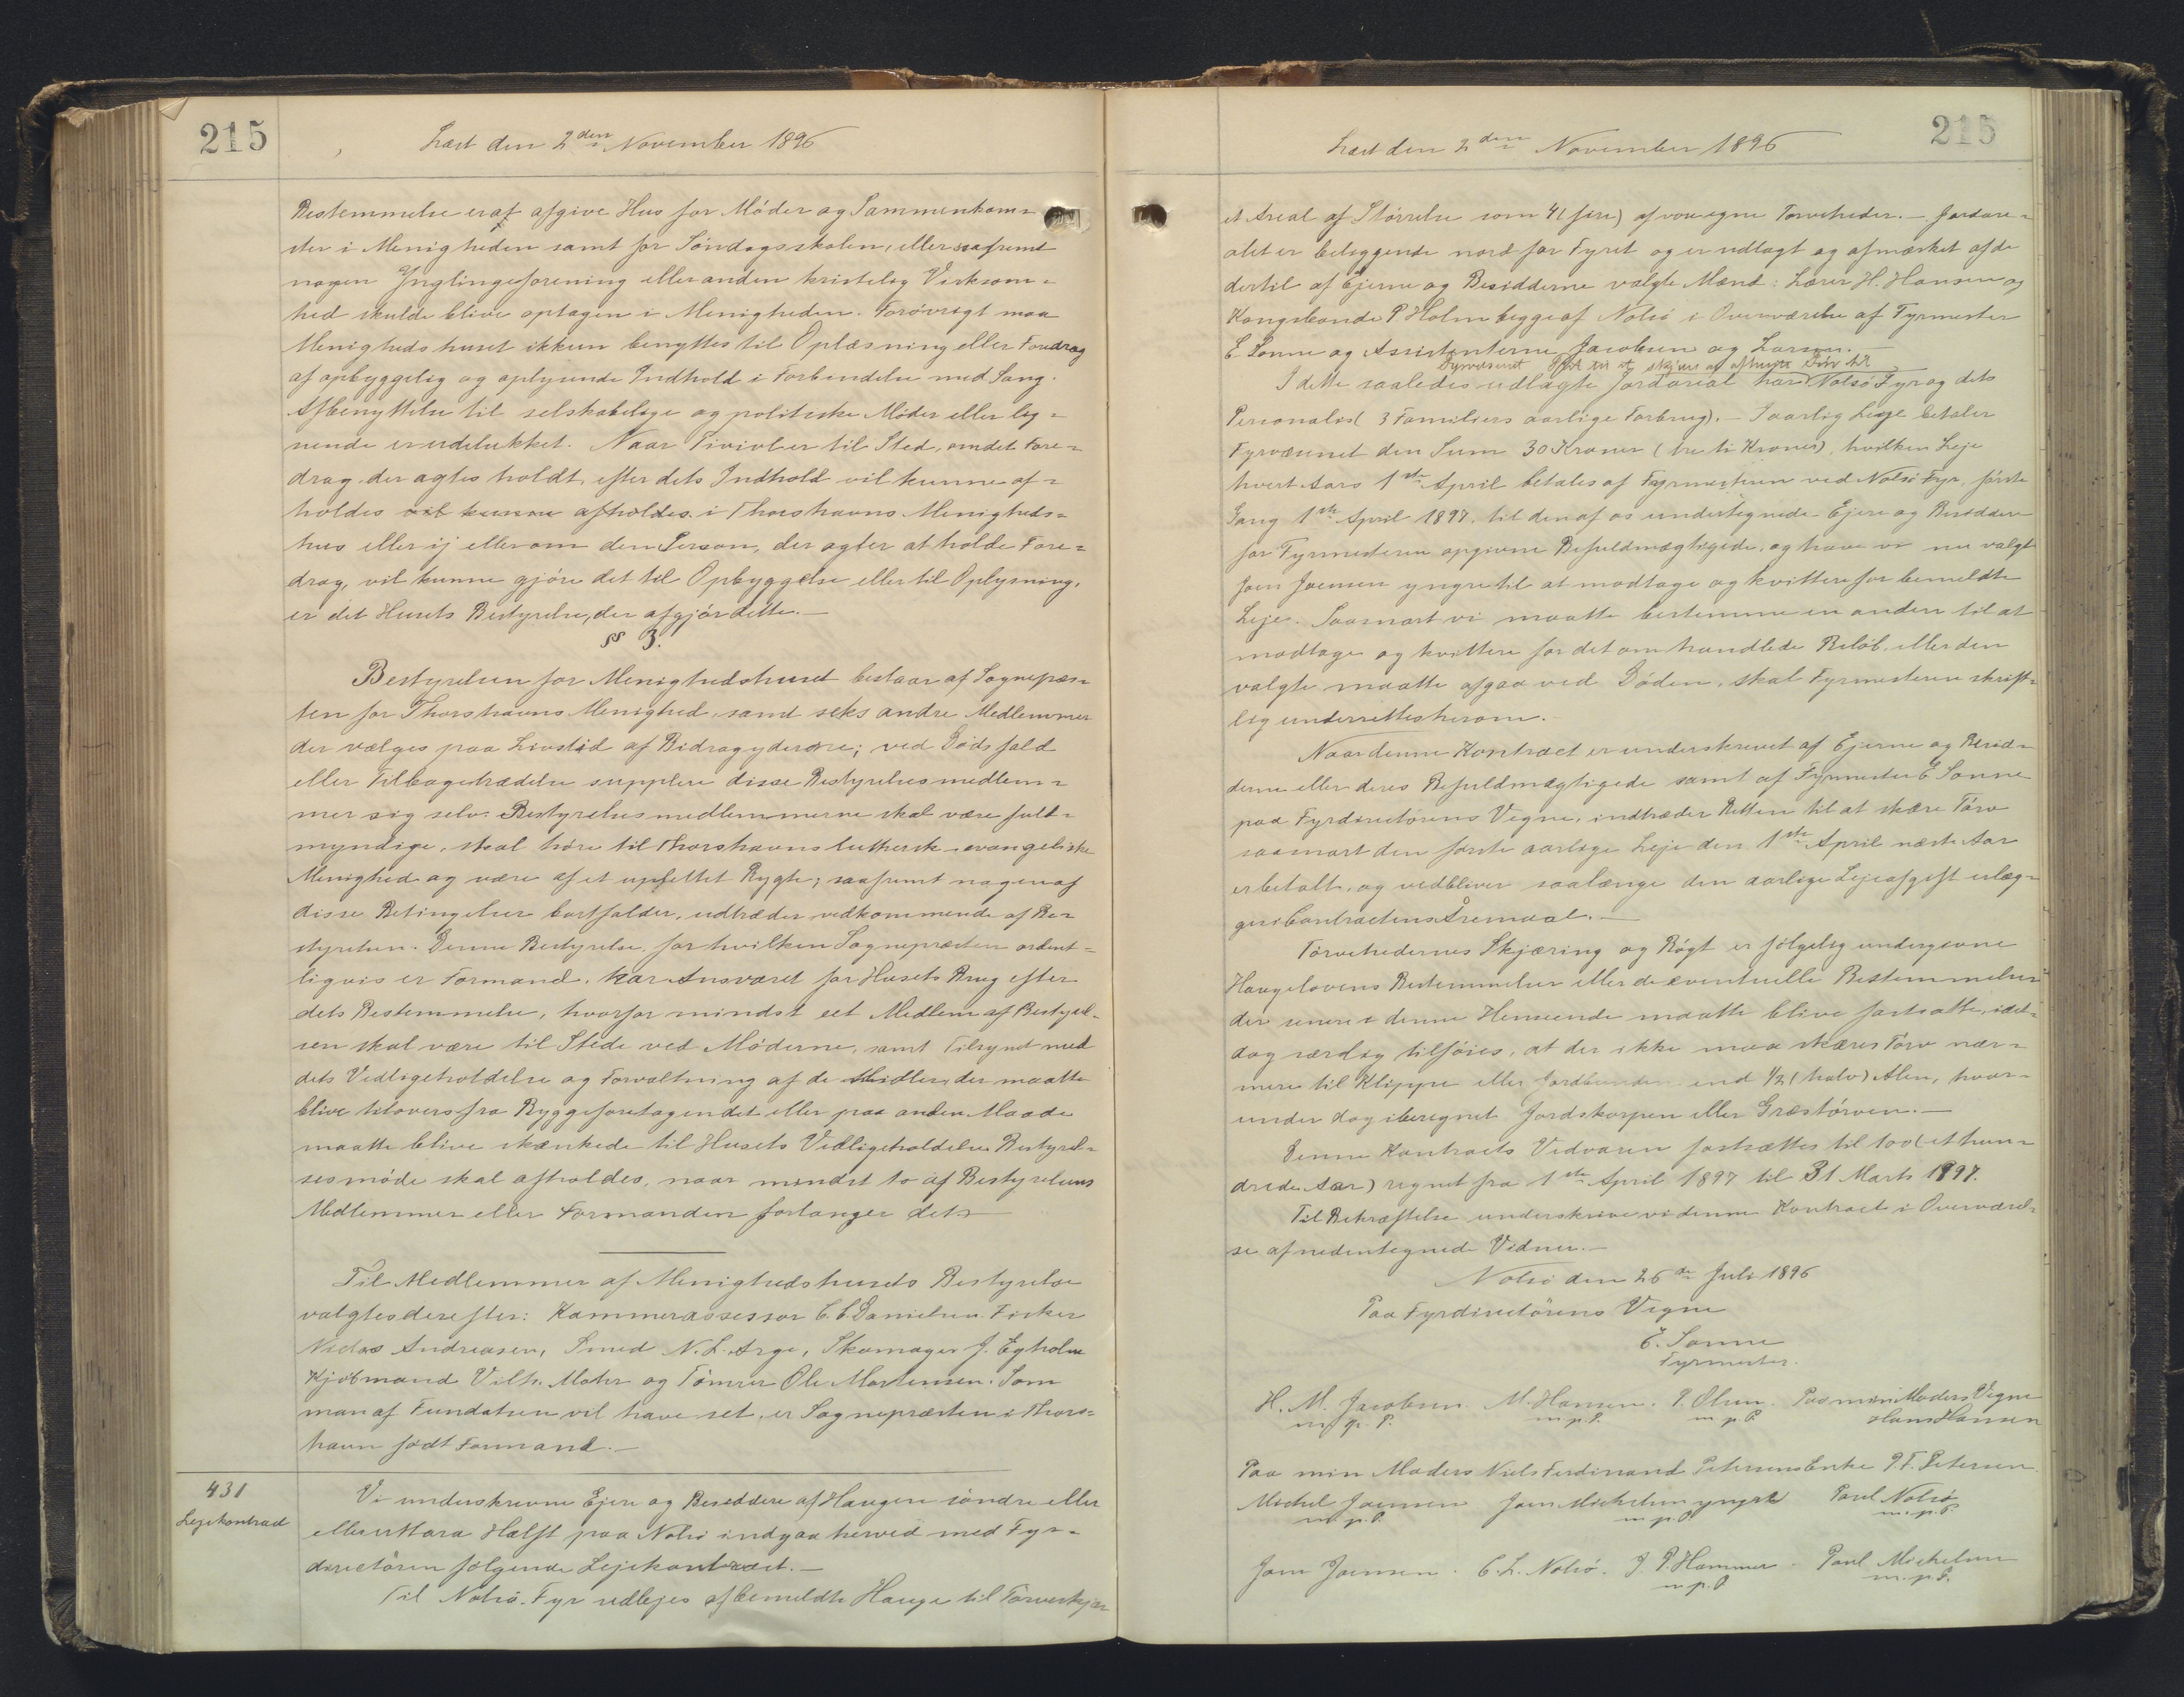 215
Læst den 2den November 1896
Bestemmelse er at afgive Hus for Möder og Sammenkom=
ster i Menigheden samt for Söndagsskolen, eller saafremt
nogen Ynglingeforening eller anden kristelig Virksom=
hed skulde blive optagen i Menigheden. Forövrigt maa
Menighedshuset ikkun benyttes til Oplæsning eller Foredrag
af opbyggelig og oplysende Indhold i Forbindelse med Sang.
Afbenyttelse til selskabelige og politiske Möder eller lig=
nende er udelukket. Naar Tivivl er til Sted, om det Fore=
drag der agtes holdt, efter dets Indhold vil kunne af=
holdes vil kunne afholdes i Thorshavns Menigheds=
hus eller ij eller om den Person, der agter at holde Fore=
drag, vil kunne gjöre det til Opbyggelse eller til Oplysning,
er det Husets Bestyrelse, der afgjör dette.—
§§ 3.
Bestyrelsen for Menighedshuset bestaar af Sognepræs=
ten for Thorshavns Menighed, samt seks andre Medlemmer
der vælges paa Livstid af Bidragyderne; ved Dödsfald
eller Tilbagetrædelse supplere disse Bestyrelsesmedlem=
mer sig selv. Bestyrelsesmedlemmerne skal være fuld=
myndige, skal höre til Thorshavns luthersk-evangeliske
Menighed og være af et uplettet Rygte; saafremt nogen af
disse Betingelser bortfalder, udtræder vedkommende af Be=
styrelsen. Denne Bestyrelse, for hvilken Sognepræsten ordent=
ligvis er Formand, har Ansvaret for Husets Brug efter
dets Bestemmelse, hvorfor mindst eet Medlem af Bestyrel=
sen skal være til Stede ved Möderne, samt Tilsynet med
dets Vedligeholdelse og Forvaltning af de Midler, der maatte
blive tilovers fra Byggeforetagendet eller paa anden Maade
maatte blive skænkede til Husets Vedligeholdelse. Bestyrel=
sesmöde skal afholdes, naar mindst to af Bestyrelsens
Medlemmer eller Formanden forlanger det.—
Til Medlemmer af Menighedshusets Bestyrelse
valgtes derefter: Kammerassessor C. C. Danielsen, Fisker
Niclas Andreasen, Smed N. L. Arge, Skomager J. Egholm
Kjöbmand Vilh. Mohr og Tömrer Ole Mortensen. Som
man af Fundatsen vil have set, er Sognepræsten i Thors=
havn födt Formand.—
431
Lejekontract
Vi underskrevne Ejere og Besiddere af Haugen söndre eller
eller uttara Hælft paa Nolsö indgaa herved med Fyr=
directören fölgende Lejekontract.—
Til Nolsö Fyr udlejes af bemeldte Hauge til Törveskjær
215
Læst den 2den November 1896
et Areal af Störrelse som 4 (fire) af vore egne Törveheder.— Jordare=
alet er beliggende nord for Fyret og er udlagt og afmærket af de
dertil af Ejerne og Besidderne valgte Mænd: Lærer H. Hansen og
Kongsbonde P Holm begge af Nolsö i Overværelse af Fyrmester
E. Sonne og Assistenterne Jacobsen og Larsen.—
Fyrvæsenet Ret til at skjære og aftørre Törv til
I dette saaledes udlagte Jordareal har Nolsö Fyr og dets
Personales (3 Familiers aarlige Forbrug).— I aarlig Leje betaler
Fyrvæsenet den Sum 30 Kroner (tre ti Kroner), hvilken Leje
hvert Aars 1ste April betales af Fyrmesteren ved Nolsö Fyr, förste
Gang 1ste April 1897, til den af os undertegnede Ejere og Besiddere
for Fyrmesteren opgivne Befuldmægtigede, og have vi nu valgt
Joen Joensen yngre til at modtage og kvittere for bemeldte
Leje. Saasnart vi maatte bestemme en anden til at
modtage og kvittere for det omhandlede Belöb, eller den
valgte maatte afgaa ved Döden, skal Fyrmesteren skrift=
lig underrettes herom.
Naar denne Kontract er underskrevet af Ejerne og Besid=
derne eller deres Befuldmægtigede samt af Fyrmester E Sonne
paa Fyrdirectörens Vegne, indtræder Retten til at skære Törv
saasnart den förste aarlige Leje den 1ste April næste Aar
er betalt, og vedbliver saalænge den aarlige Lejeafgift erlæg=
ges i Contractens Åremaal.—
Törvehedernes Skjæring og Rögt er fölgelig undergivne
Haugelovens Bestemmelser eller de eventuelle Bestemmelser
der senere i denne Henseende maatte blive fastsatte, idet=
dog særlig tilföies, at der ikke maa skæres Törv nær=
mere til Klippe eller Jordbunden end ½ (halv) Alen, hvor=
under dog iberegnet Jordskorpen eller Græstörven.—
Denne Kontracts Vedvaren fastsættes til 100 (et hun=
drede Aar) regnet fra 1ste April 1897 til 31 Marts 1997.
Til Bekræftelse underskrive vi denne Kontract i Overværel=
se af nedentegnede Vidner.—
Nolsö den 26de Juli 1896
Paa Fyrdirectörens Vegne
E. Sonne
Fyrmester.
H. M. Jacobsen M. Hansen. P. Olsen. Paa min Moders Vegne
m. p. P. m. p. P. m. p. P. Hans Hansen
Paa min Moders Niels Ferdinand Petersens Enke P. F. Petersen
Michel Joensen Joen Michelsen yngste Poul Nolsö
m. p. P. m. p. P. m. p. P.
Joen Joensen. C. L. Nolsö. J. P. Hammer. Poul Michelsen
m. p. P. m. p. P.